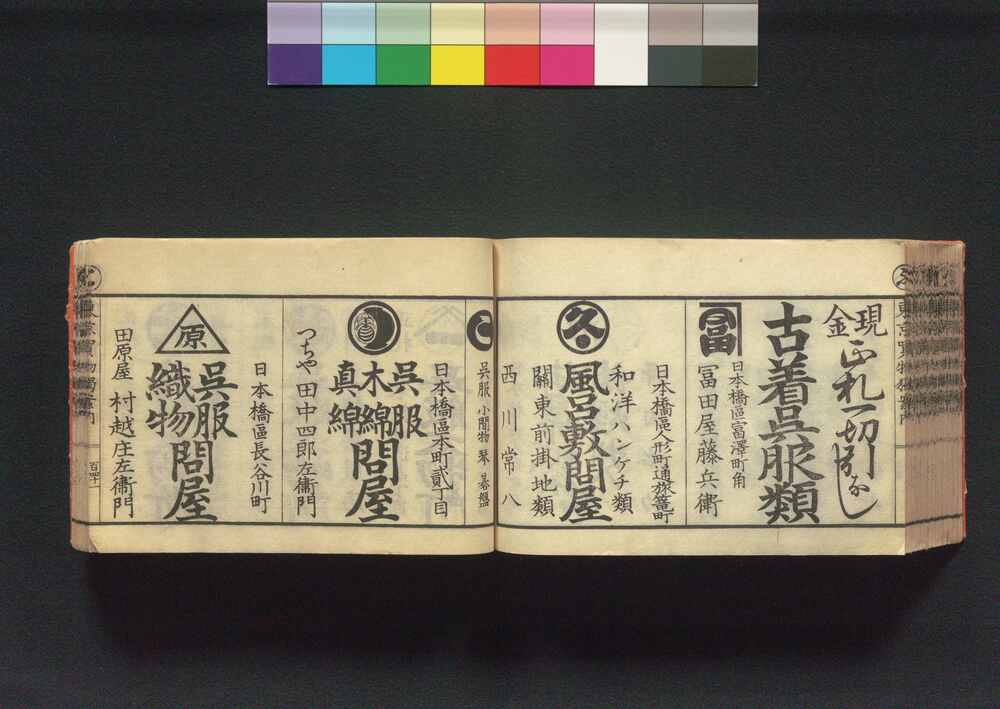 現金
正札一切
かけねなし
古着呉服類
冨
日本橋區冨澤町角
冨田屋藤兵衛
日本橋區人形町通旅篭町
和洋ハンケチ類
久
風呂敷問屋
關東前掛地類
西川常八
呉服 小間物 琴 碁盤
日本橋區本町貳丁目
呉服
木綿
真綿
問屋
つちや 田中四郎左衞門
日本橋區長谷川町
原
呉服
織物
問屋
田原屋 村越庄左衞門